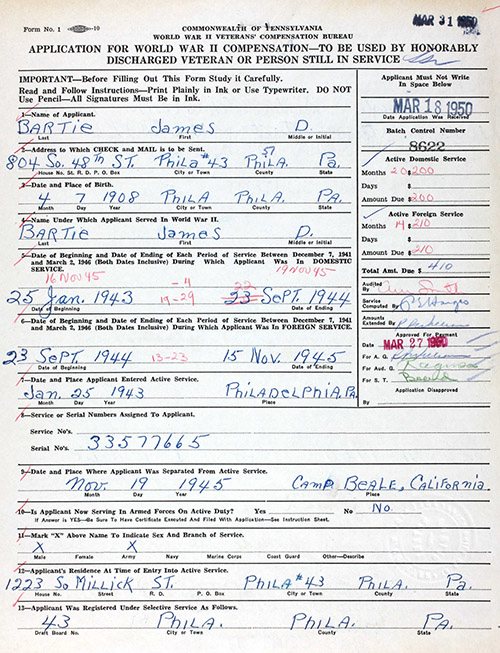 Form No. 1
COMMONWEALTH OF PENNSYLVANIA
WORLD WAR II VETERANS' COMPENSATION BUREAU
MAR 31 1950
APPLICATION FOR WORLD WAR II COMPENSATION—TO BE USED BY HONORABLY
DISCHARGED VETERAN OR PERSON STILL IN SERVICE
IMPORTANT—Before Filling Out This Form Study it Carefully.
Read and Follow Instructions—Print Plainly in Ink or Use Typewriter. DO NOT
Use Pencil—All Signatures Must be in Ink.
Applicant Must Not Write
In Space Below
MAR 18 1950
Date Application Was Received
Batch Control Number
8622
Active Domestic Service
Months 20 $ 200
Days $
Amount Due $ 200
Active Foreign Service
Months 14 $ 210
Days $
Amount Due $ 210
Total Amt. Due $ 410
Audited
By
Service
Computed By
Amounts
Extended By
Approved For Payment
Date MAR 27 1950
For A. G.
For Aud. G.
For S. T.
Application Disapproved
By
1—Name of Applicant.
BARTIE James D.
Last First Middle or Initial
2—Address to Which CHECK and MAIL is to be Sent.
804 So. 48th ST. Phila #43 PhilA. Pa.
House No. St. R. D. P. O. Box City or Town County State
3—Date and Place of Birth.
4 7 1908 Phila PhilA PA.
Month Day Year City or Town County State
4—Name Under Which Applicant Served In World War II.
BARTIE James D.
Last First Middle or Initial
5—Date of Beginning and Date of Ending of Each Period of Service Between December 7, 1941
and March 2, 1946 (Both Dates Inclusive) During Which Applicant Was In DOMESTIC
SERVICE.
16 Nov 45 19 Nov 45
-4 22
25 Jan. 1943 19-29 23 SepT. 1944
Date of Beginning Date of Ending
6—Date of Beginning and Date of Ending of Each Period of Service Between December 7, 1941
and March 2, 1946 (Both Dates Inclusive) During Which Applicant Was In FOREIGN SERVICE.
23 SepT. 1944 13-23 15 Nov. 1945
Date of Beginning Date of Ending
7—Date and Place Applicant Entered Active Service.
Jan. 25 1943 PhilADelphiA, PA.
Month Day Year Place
8—Service or Serial Numbers Assigned To Applicant.
Service No's.
Serial No's. 33577665
9—Date and Place Where Applicant Was Separated From Active Service.
Nov. 19 1945 CAMP BEALE, CALIFORNIA.
Month Day Year Place
10—Is Applicant Now Serving In Armed Forces On Active Duty? Yes No No.
If Answer is YES—Be Sure To Have Certificate Executed And Filed With Application—See Instruction Sheet.
11—Mark "X" Above Name To Indicate Sex And Branch of Service.
X X
Male Female Army Navy Marine Corps Coast Guard Other—Describe
12—Applicant's Residence At Time of Entry Into Active Service.
1223 So Millick ST. PhilA #43 PhilA. Pa.
House No. Street R. D. P. O. Box City or Town County State
13—Applicant Was Registered Under Selective Service As Follows.
43 PhilA. PhilA. Pa.
Draft Board No. City or Town County State